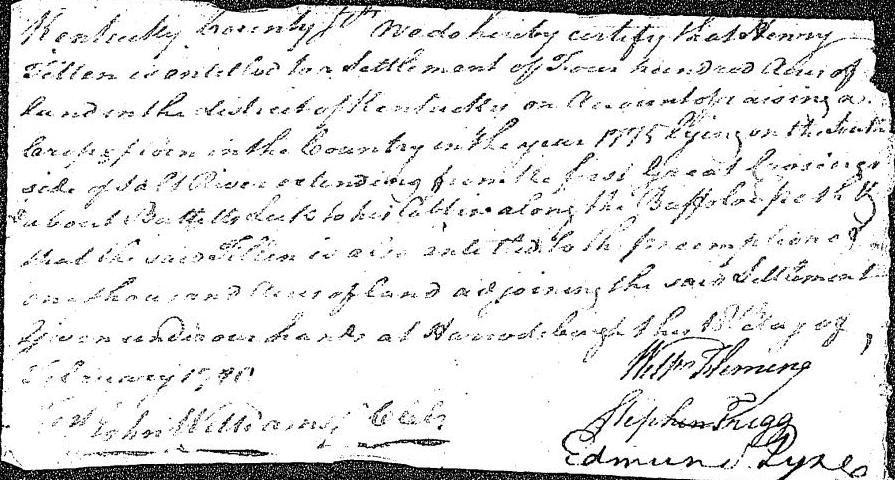 Kentucky County Sct We do hereby certify that Henry
Tillen is entitled to a Settlement of Four hundred Acres of
Land in the district of Kentucky on Account of raising a
Crop of corn in the Country in the year 1775 lying on the
side of Salt River extending from the first Great Crossing
about Lick to his Cabbin along the Buffaloe path &
that the said Tillen is also entitled to the preemption of
one thousand Acres of Land adjoining the said Settlement
Given under our hands at Harrodsburgh this 18 day of
February 1780
John Williams Clk
Wm Fleming
Stephen Trigg
Edmund Lyne